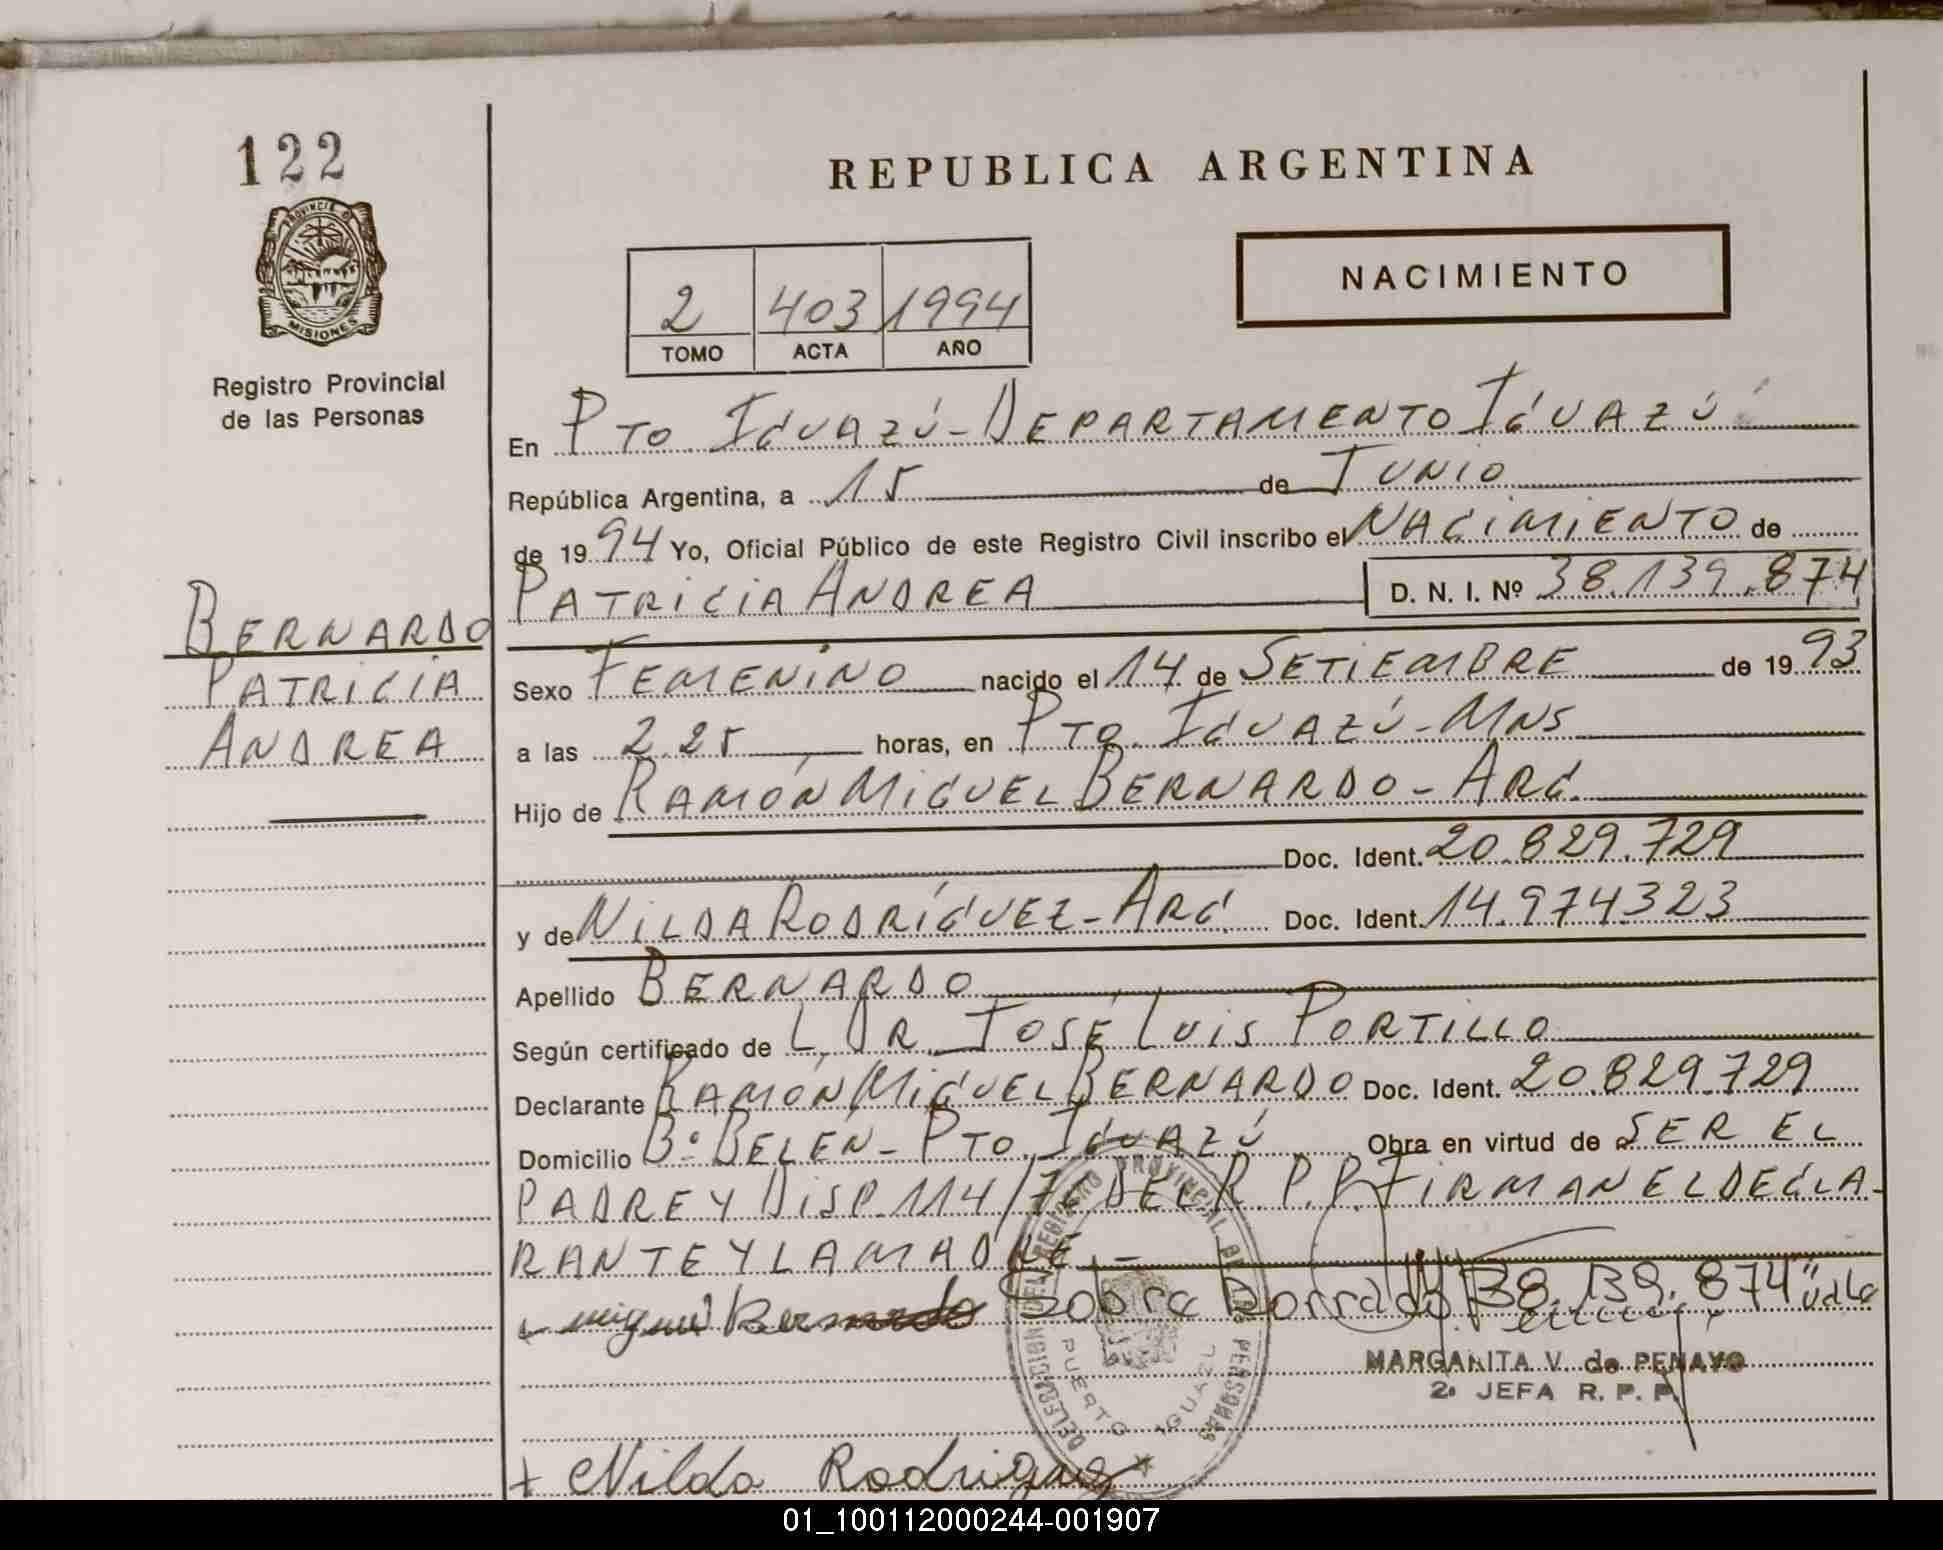 122
PROVINCIA DE
MISIONES
Registro Provincial
de las Personas
REPUBLICA ARGENTINA
NACIMIENTO
2 403 1994
TOMO ACTA AÑO
En PTO. IGUAZÚ - DEPARTAMENTO IGUAZÚ
República Argentina, a 15 de JUNIO
de 1994 Yo, Oficial Público de este Registro Civil inscribo el NACIMIENTO de
PATRICIA ANDREA D. N. I. Nº 38.139.874
BERNARDO
PATRICIA
ANDREA
Sexo FEMENINO nacido el 14 de SETIEMBRE de 1993
a las 2.25 horas, en PTO. IGUAZÚ - MNS
Hijo de RAMÓN MIGUEL BERNARDO - ARG.
Doc. Ident. 20.829.729
y de NILDA RODRÍGUEZ - ARG. Doc. Ident. 14.974323
Apellido BERNARDO
Según certificado de L, DR. JOSÉ LUIS PORTILLO
Declarante RAMÓN MIGUEL BERNARDO Doc. Ident. 20.829.729
Domicilio Bº BELÉN - PTO. IGUAZÚ Obra en virtud de SER EL
PADRE Y DISP. 114/ DEL R.P.P. FIRMAN EL DECLA-
RANTE Y LA MADRE. -
Miguel Bernardo Sobre borrado "38.139.874" Vale
DELEGACION DEL REGISTRO PROVINCIAL DE LAS PERSONAS
PUERTO IGUAZU
MARGARITA V. de PENAYO
2ª JEFA R. P. P.
+ Nilda Rodriguez
01_100112000244-001907